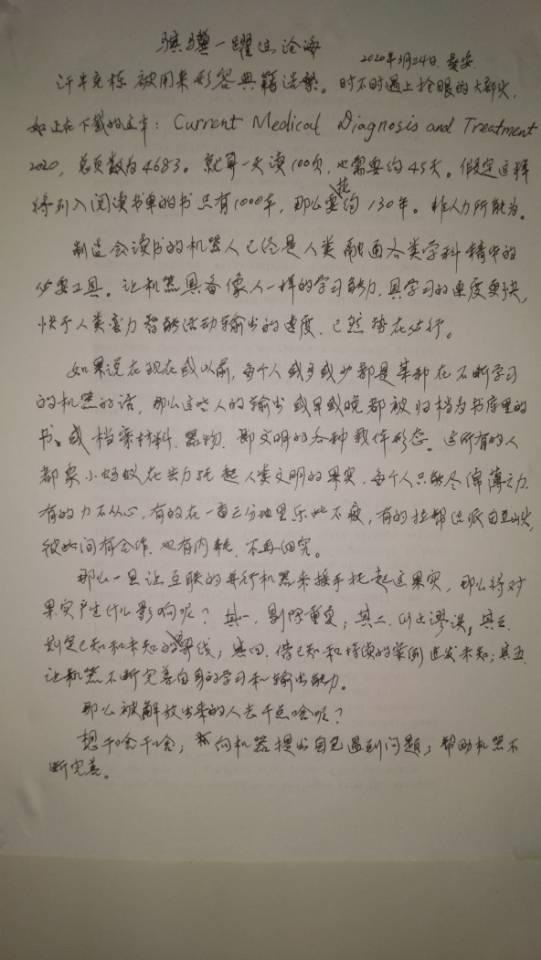 骐骥一躍过沧海
2020年3月24日
汗牛充栋被用来形容典籍浩繁。时不时遇上抢眼的大部头,
如正在下载的这本: Current Medical Diagnosis and Treatment
2020, 总页数为4683。就算一天读100页,也需要约45天。假定这样
待列入阅读书单的书只有1000本,那么要花约130年。非人力所能为。
制造会读书的机器人已经是人类融通各类学科精华的
必要工具。让机器具备像人一样的学习能力,且学习的速度更快,
快于人类智能活动输出的速度,已然势在必行。
如果说在现在或以前,每个人或多或少都是某种在不断学习
的机器的话,那么这些人的输出或早或晚都被归档为书库里的
书、或档案材料、器物,即文明的各种载体形态。这所有的人
都象小蚂蚁在共力托起人类文明的果实,每个人只能尽绵薄之力
有的力不从心,有的在一亩三分地里乐此不疲,有的拉帮结派自立山头,
彼此间有合作,也有内耗,不再细究。
那么一旦让互联的并行机器来接手托起这果实,那么将对
果实产生什么影响呢?其一,剔除重复;其二,纠正谬误,其三
划定已知和未知的界线;其四,借已知和持续的案例进发未知;其五
让机器不断完善自身的学习和输出能力。
那么被解放出来的人去干点啥呢?
想干啥干啥,向机器提出自己遇到问题,帮助机器不
断完善。